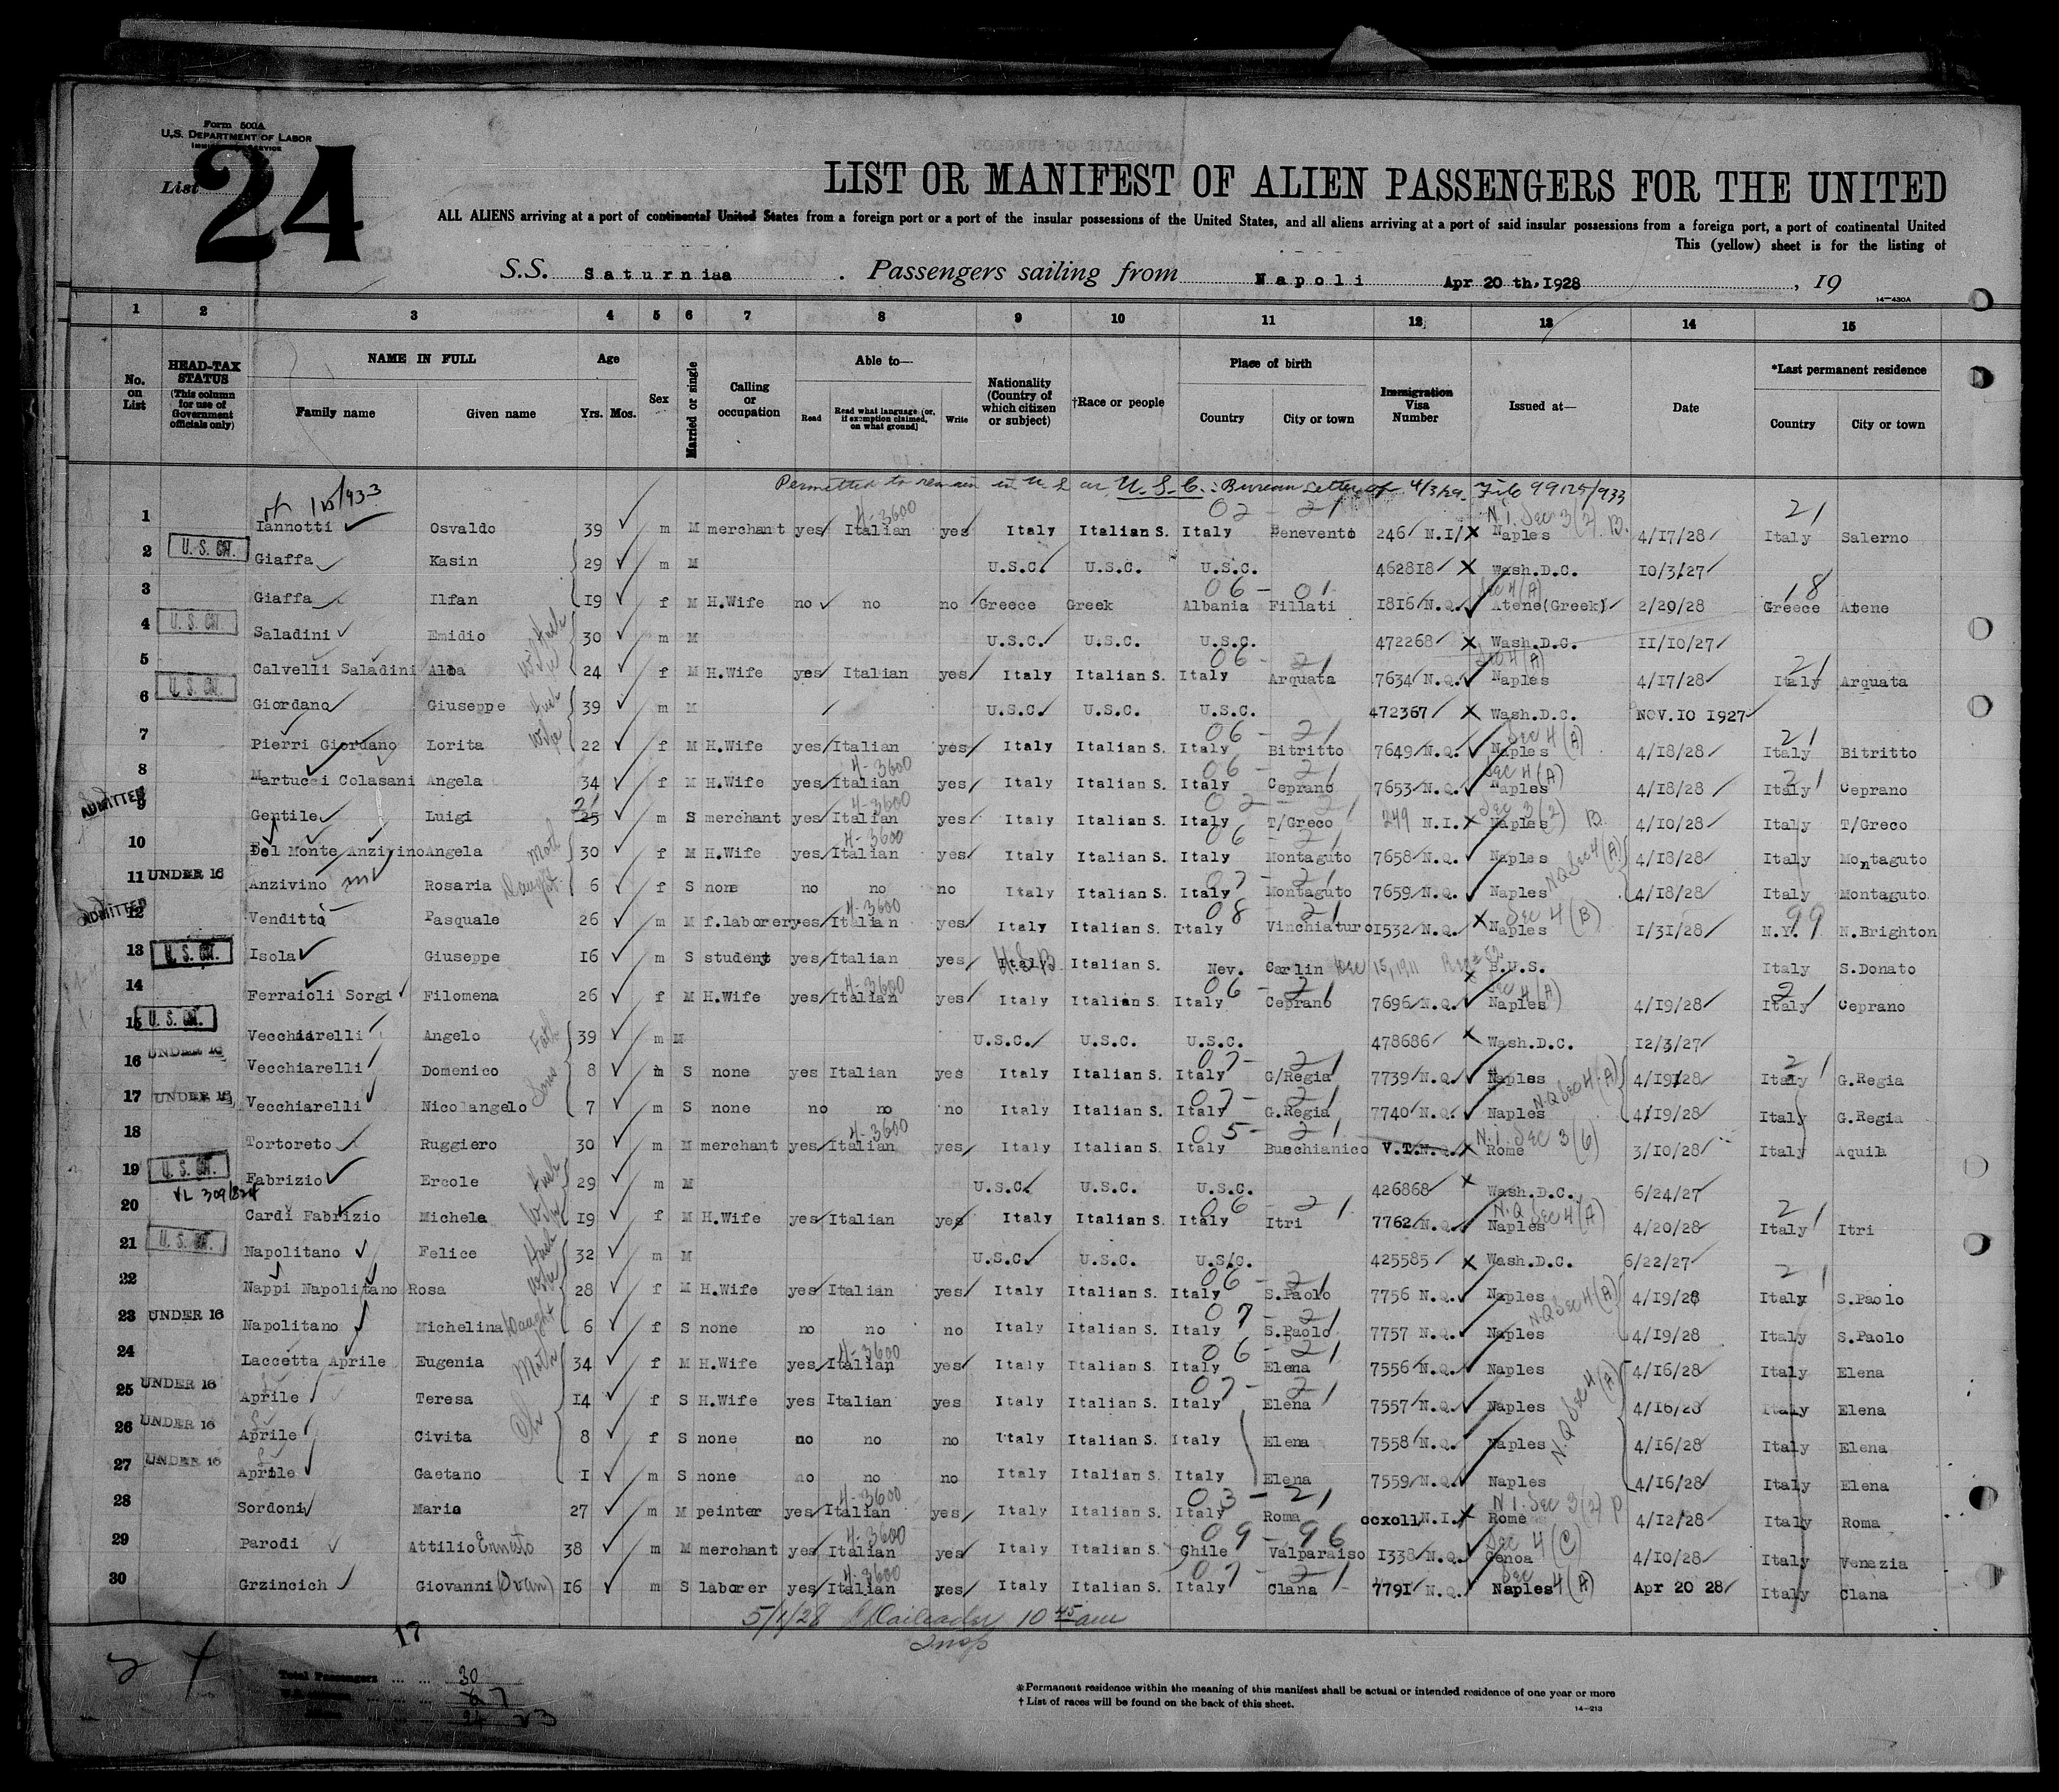 Form 500A
U.S. DEPARTMENT OF LABOR
IMMIGRATION SERVICE
List 24
LIST OR MANIFEST OF ALIEN PASSENGERS FOR THE UNITED
ALL ALIENS arriving at a port of continental United States from a foreign port or a port of the insular possessions of the United States, and all aliens arriving at a port of said insular possessions from a foreign port, a port of continental United
This (yellow) sheet is for the listing of
S.S. Saturniaa . Passengers sailing from Napoli Apr 20 th,1928 , 19
14-430A
1 2 3 4 5 6 7 8 9 10 11 12 13 14 15
No. on List HEAD-TAX STATUS (This column for use of Government officials only) NAME IN FULL Family name Given name Age Yrs. Mos. Sex Married or single Calling or occupation Able to— Read Read what language [or, if exemption claimed, on what ground] Write Nationality (Country of which citizen or subject) †Race or people Place of birth Country City or town Immigration Visa Number Issued at— Date *Last permanent residence Country City or town
Permitted to remain in U.S. as U.S.C.: Bureau Letter of 4/3/29. File 99125/933
1 Iannotti Osvaldo 39 m M merchant yes Italian 4-3600 yes Italy Italian S. Italy 02-21 Benevento 246 N.I. Naples N.I. Sec 3(2) B. 4/17/28 Italy 21 Salerno
2 U.S. CIT. Giaffa Kasin 29 m M U.S.C. U.S.C. U.S.C. 462818 Wash.D.C. 10/3/27
3 Giaffa Ilfan 19 f M H.Wife no no no Greece Greek Albania 06-01 Fillati 1816 N.Q. Atene(Greek) Sec 4(A) 2/29/28 Greece 18 Atene
4 U.S. CIT. Saladini Emidio Husb 30 m M U.S.C. U.S.C. U.S.C. 472268 Wash.D.C. 11/10/27
5 Calvelli Saladini Alba Wife 24 f M H.Wife yes Italian yes Italy Italian S. Italy 06-21 Arquata 7634 N.Q. Naples Sec 4(A) 4/17/28 Italy 21 Arquata
6 U.S. CIT. Giordano Giuseppe Husb 39 m M U.S.C. U.S.C. U.S.C. 472367 Wash.D.C. NOV.10 1927
7 Pierri Giordano Lorita Wife 22 f M H.Wife yes Italian yes Italy Italian S. Italy 06-21 Bitritto 7649 N.Q. Naples Sec 4(A) 4/18/28 Italy 21 Bitritto
8 Martucci Colasani Angela 34 f M H.Wife yes Italian 4-3600 yes Italy Italian S. Italy 06-21 Ceprano 7653 N.Q. Naples Sec 4(A) 4/18/28 Italy 21 Ceprano
ADMITTED 9 Gentile Luigi 25 21 m S merchant yes Italian 4-3600 yes Italy Italian S. Italy 02-21 T/Greco 249 N.I. Naples Sec 3(2) B. 4/10/28 Italy T/Greco
10 Del Monte Anzivino Angela Moth 30 f M H.Wife yes Italian 4-3600 yes Italy Italian S. Italy 06-21 Montaguto 7658 N.Q. Naples N.Q Sec 4(A) 4/18/28 Italy Montaguto
11 UNDER 16 Anzivino Rosaria Daught 6 f S none no no no Italy Italian S. Italy 07-21 Montaguto 7659 N.Q. Naples 4/18/28 Italy Montaguto
ADMITTED 12 Venditti Pasquale 26 m M f.laborer yes Italian 4-3600 yes Italy Italian S. Italy 08 21 Vinchiaturo 1532 N.Q. Naples Sec 4(B) 1/31/28 N.Y. 99 N.Brighton
13 U.S. CIT. Isola Giuseppe 16 m S student yes Italian yes Italy Italian S. Nev. Carlin Dec 15, 1911 B.U.S. Italy S.Donato
14 Ferraioli Sorgi Filomena 26 f M H.Wife yes Italian 4-3600 yes Italy Italian S. Italy 06-21 Ceprano 7696 N.Q. Naples Sec 4(A) 4/19/28 Italy 21 Ceprano
15 U.S. CIT. Vecchiarelli Angelo Fath 39 m M U.S.C. U.S.C. U.S.C. 478686 Wash.D.C. 12/3/27
16 UNDER 16 Vecchiarelli Domenico Sons 8 m S none yes Italian yes Italy Italian S. Italy 07-21 G/Regia 7739 N.Q. Naples N.Q Sec 4(A) 4/19/28 Italy 21 G.Regia
17 UNDER 16 Vecchiarelli Nicolangelo 7 m S none no no no Italy Italian S. Italy 07-21 G.Regia 7740 N.Q. Naples 4/19/28 Italy G.Regia
18 Tortoreto Ruggiero 30 m M merchant yes Italian 4-3600 yes Italy Italian S. Italy 05-21 Buschianico V.T.N.Q. Rome N.I. Sec 3(6) 3/10/28 Italy Aquila
19 U.S. CIT. Fabrizio Ercole Husb 29 m M U.S.C. U.S.C. U.S.C. 426868 Wash.D.C. 6/24/27
20 VL 309/824 Cardi Fabrizio Michela Wife 19 f M H.Wife yes Italian yes Italy Italian S. Italy 06-21 Itri 7762 N.Q. Naples N.Q Sec 4(A) 4/20/28 Italy 21 Itri
21 U.S. CIT. Napolitano Felice Husb 32 m M U.S.C. U.S.C. U.S.C. 425585 Wash.D.C. 6/22/27
22 Nappi Napolitano Rosa Wife 28 f M H.Wife yes Italian yes Italy Italian S. Italy 06-21 S.Paolo 7756 N.Q. Naples N.Q Sec 4(A) 4/19/28 Italy 21 S.Paolo
23 UNDER 16 Napolitano Michelina Daught 6 f S none no no no Italy Italian S. Italy 07-21 S.Paolo 7757 N.Q. Naples 4/19/28 Italy S.Paolo
24 Laccetta Aprile Eugenia Moth 34 f M H.Wife yes Italian 4-3600 yes Italy Italian S. Italy 06-21 Elena 7556 N.Q. Naples 4/16/28 Italy Elena
25 UNDER 16 Aprile Teresa Ch 14 f S H.Wife yes Italian yes Italy Italian S. Italy 07-21 Elena 7557 N.Q. Naples N.Q Sec 4(A) 4/16/28 Italy Elena
26 UNDER 16 Aprile Civita 8 f S none no no no Italy Italian S. Italy Elena 7558 N.Q. Naples 4/16/28 Italy Elena
27 UNDER 16 Aprile Gaetano 1 m S none no no no Italy Italian S. Italy Elena 7559 N.Q. Naples 4/16/28 Italy Elena
28 Sordoni Mario 27 m M peinter yes Italian 4-3600 yes Italy Italian S. Italy 03-21 Roma ccxcll N.I. Rome N.I. Sec 3(2) P 4/12/28 Italy Roma
29 Parodi Attilio Ernesto 38 m M merchant yes Italian 4-3600 yes Italy Italian S. Chile 09-96 Valparaiso 1338 N.Q. Genoa Sec 4(C) 4/10/28 Italy Venezia
30 Grzincich Giovanni (Ivan) 16 m S laborer yes Italian 4-3600 yes Italy Italian S. Italy 07-21 Clana 7791 N.Q. Naples Sec 4(A) Apr 20 28 Italy Clana
5/1/28 10 45 am
Insp
17
Total Passengers 30
*Permanent residence within the meaning of this manifest shall be actual or intended residence of one year or more
† List of races will be found on the back of this sheet.
14-213